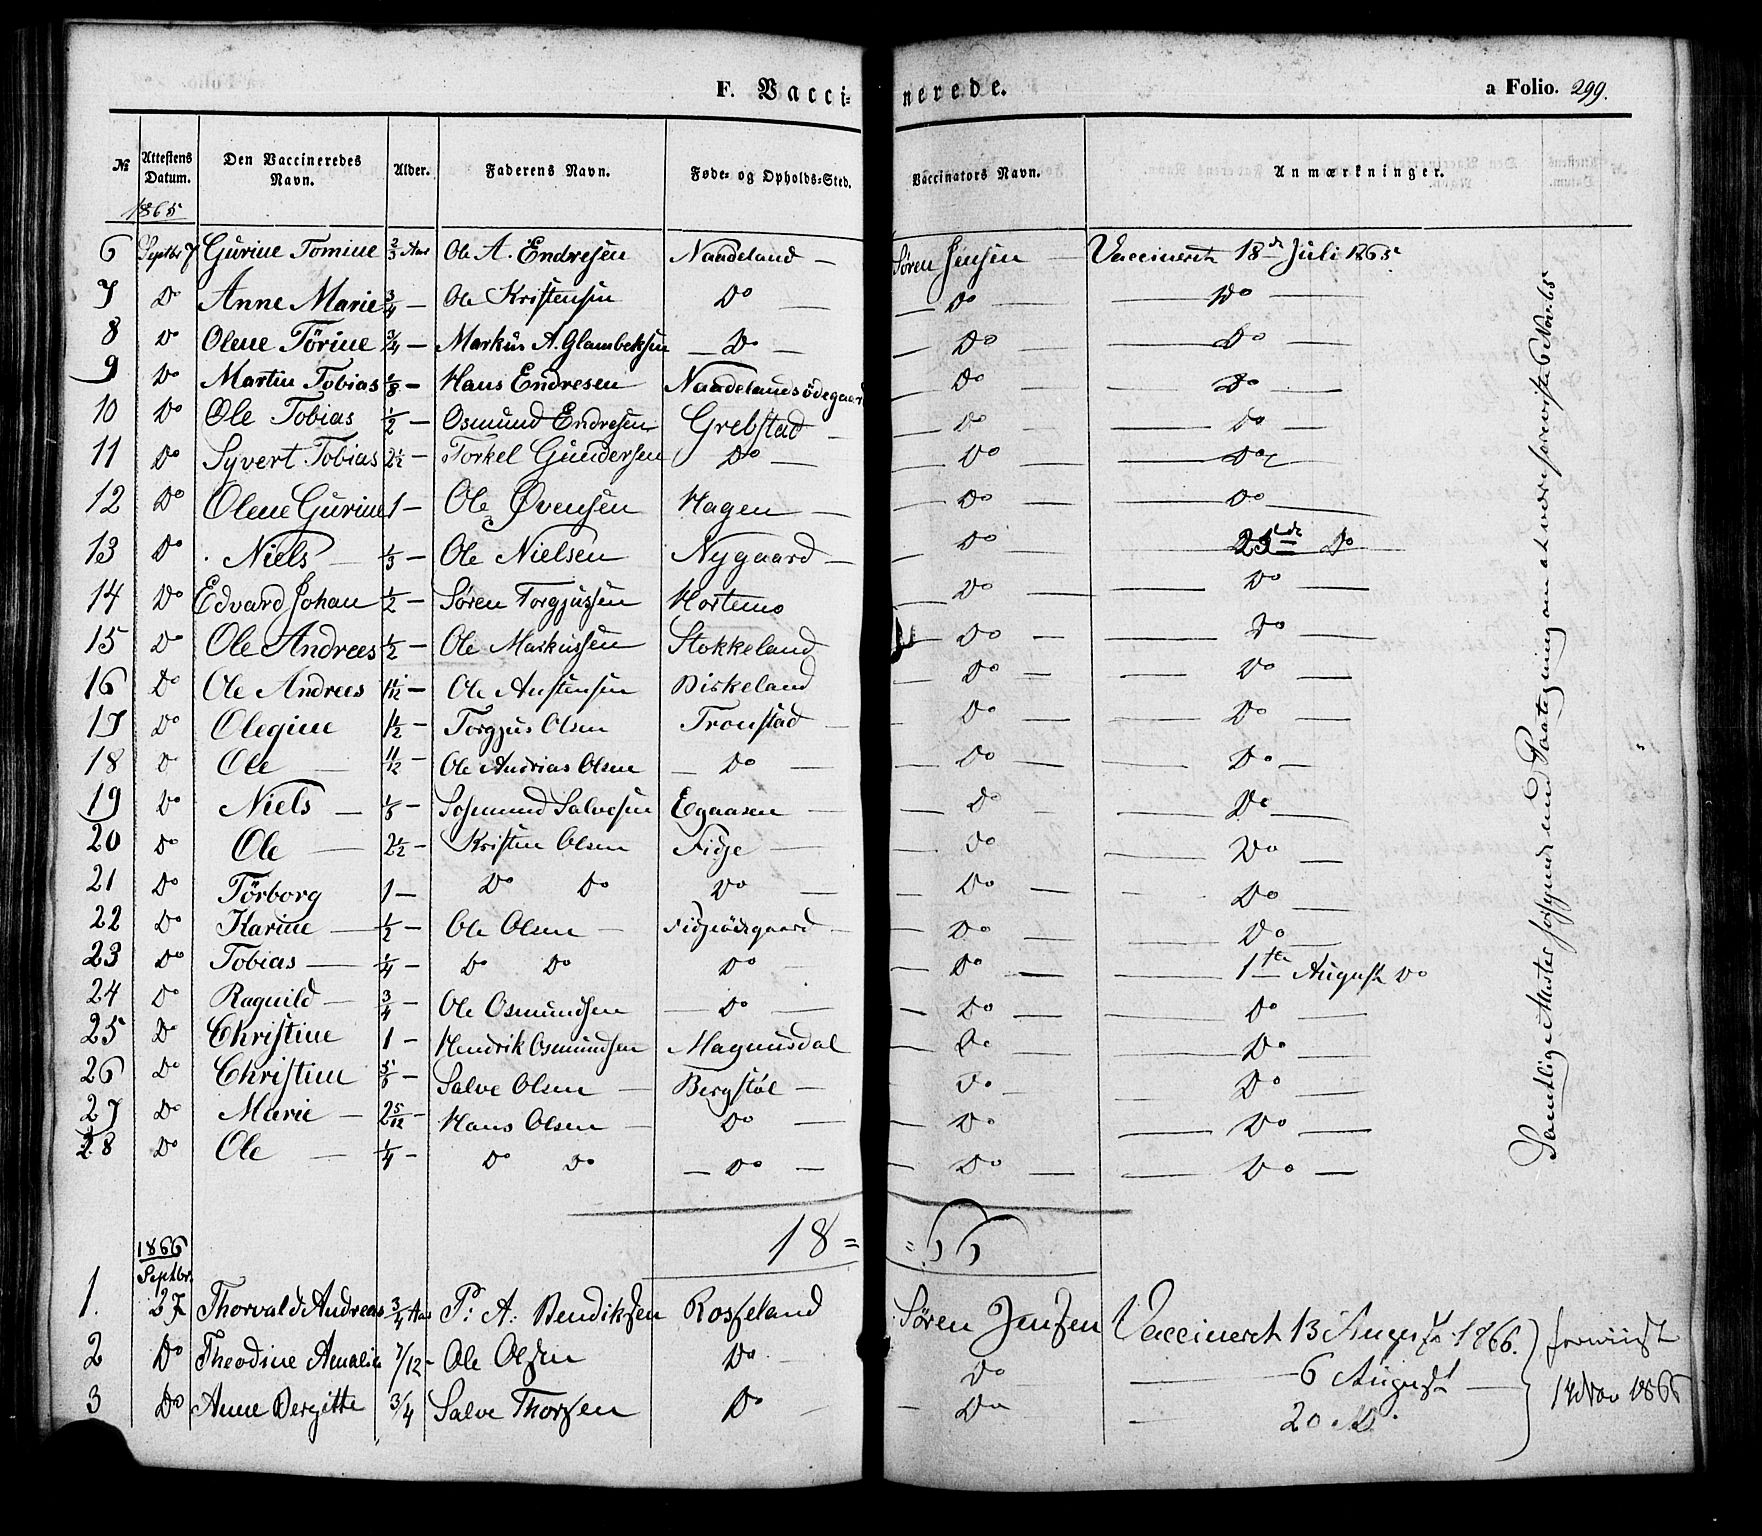 F. Vacci= nerede. a Folio. 299.
№ Attestens Datum. Den Vaccineredes Navn. Alder. Faderens Navn. Føde- og Opholds-Sted. Vaccinators Navn. Anmærkninger.
1865
6 Septbr 7 Gurine Tomine 2/3 Aar Ole A. Endresen Naadeland — Søren Jensen — Vaccineret 18de Juli 1865
7 Do Anne Marie 3/4 — Ole Kristensen Do — Do — Do —
8 Do Olene Tørine 3/4 — Markus A. Glambeksen — Do — — Do — — Do —
9 Do Martin Tobias 1/8 — Hans Endresen Naadelandsødegaard — Do — — Do —
10 Do Ole Tobias 1/2 — Osmund Endresen Grebstad — — Do — — Do —
11 Do Syvert Tobias 2 1/2 — Torkel Gundersen Do — — Do — — Do —
12 Do Olene Gurine 1 — Ole Øvensen Hagen — — Do — — Do —
13 Do Niels — 1/3 — Ole Nielsen Nygaard — — Do — — 25de Do
14 Do Edvard Johan 1/2 — Søren Torgjussen Hortemo — Do — — Do —
15 Do Ole Andreas 1/2 — Ole Markussen Stokkeland — Do — — Do —
16 Do Ole Andrees 1 1/12 — Ole Austensen Birkeland — Do — — Do —
17 Do Olegine 1 1/2 — Torgjus Olsen Tronstad — — Do — — Do —
18 Do Ole — 11/12 — Ole Andrias Olsen — Do — — Do — — Do —
19 Do Niels — 1/5 — Sosmund Salvesen Egaasen — — Do — — Do —
20 Do Ole — 2 1/2 — Kristen Olsen Fidje — — Do — — Do —
21 Do Tørborg 1 — Do Do Do — — Do — — Do —
22 Do Karine — 1/2 — Ole Olsen — Fidjeødegaard — — Do — — Do —
23 Do Tobias — 1/4 — Do Do Do — — Do — — 1ste August Do
24 Do Ragnild — 3/4 — Ole Osmundsen — Do — — Do — — Do —
25 Do Christine 1 — Hendrik Osmundsen Magnusdal — Do — — Do —
26 Do Christine 5/6 — Salve Olsen — Bergstøl — — Do — — Do —
27 Do Marie — 2 5/12 — Hans Olsen — Do — — Do — — Do —
28 Do Ole — 1/4 — Do Do — Do — — Do — — Do —
Samtlige Attester fosgnede med Paategning om at være foreviste 6 Nov. 65
18 = = 66
1866
Septbr.
1. 27 Thorvald Andreas 3/4 Aar P: A: Bendiksen Rosseland Søren Jensen Vaccineret 13 August 1866. forevist
2 Do Theodine Amalie 7/12 — Ole Olsen Do — Do — 6 August —
3 Do Anne Bergitte 3/4 Salve Thorsen Do — — Do — 20 Do. 14 Nov 1866